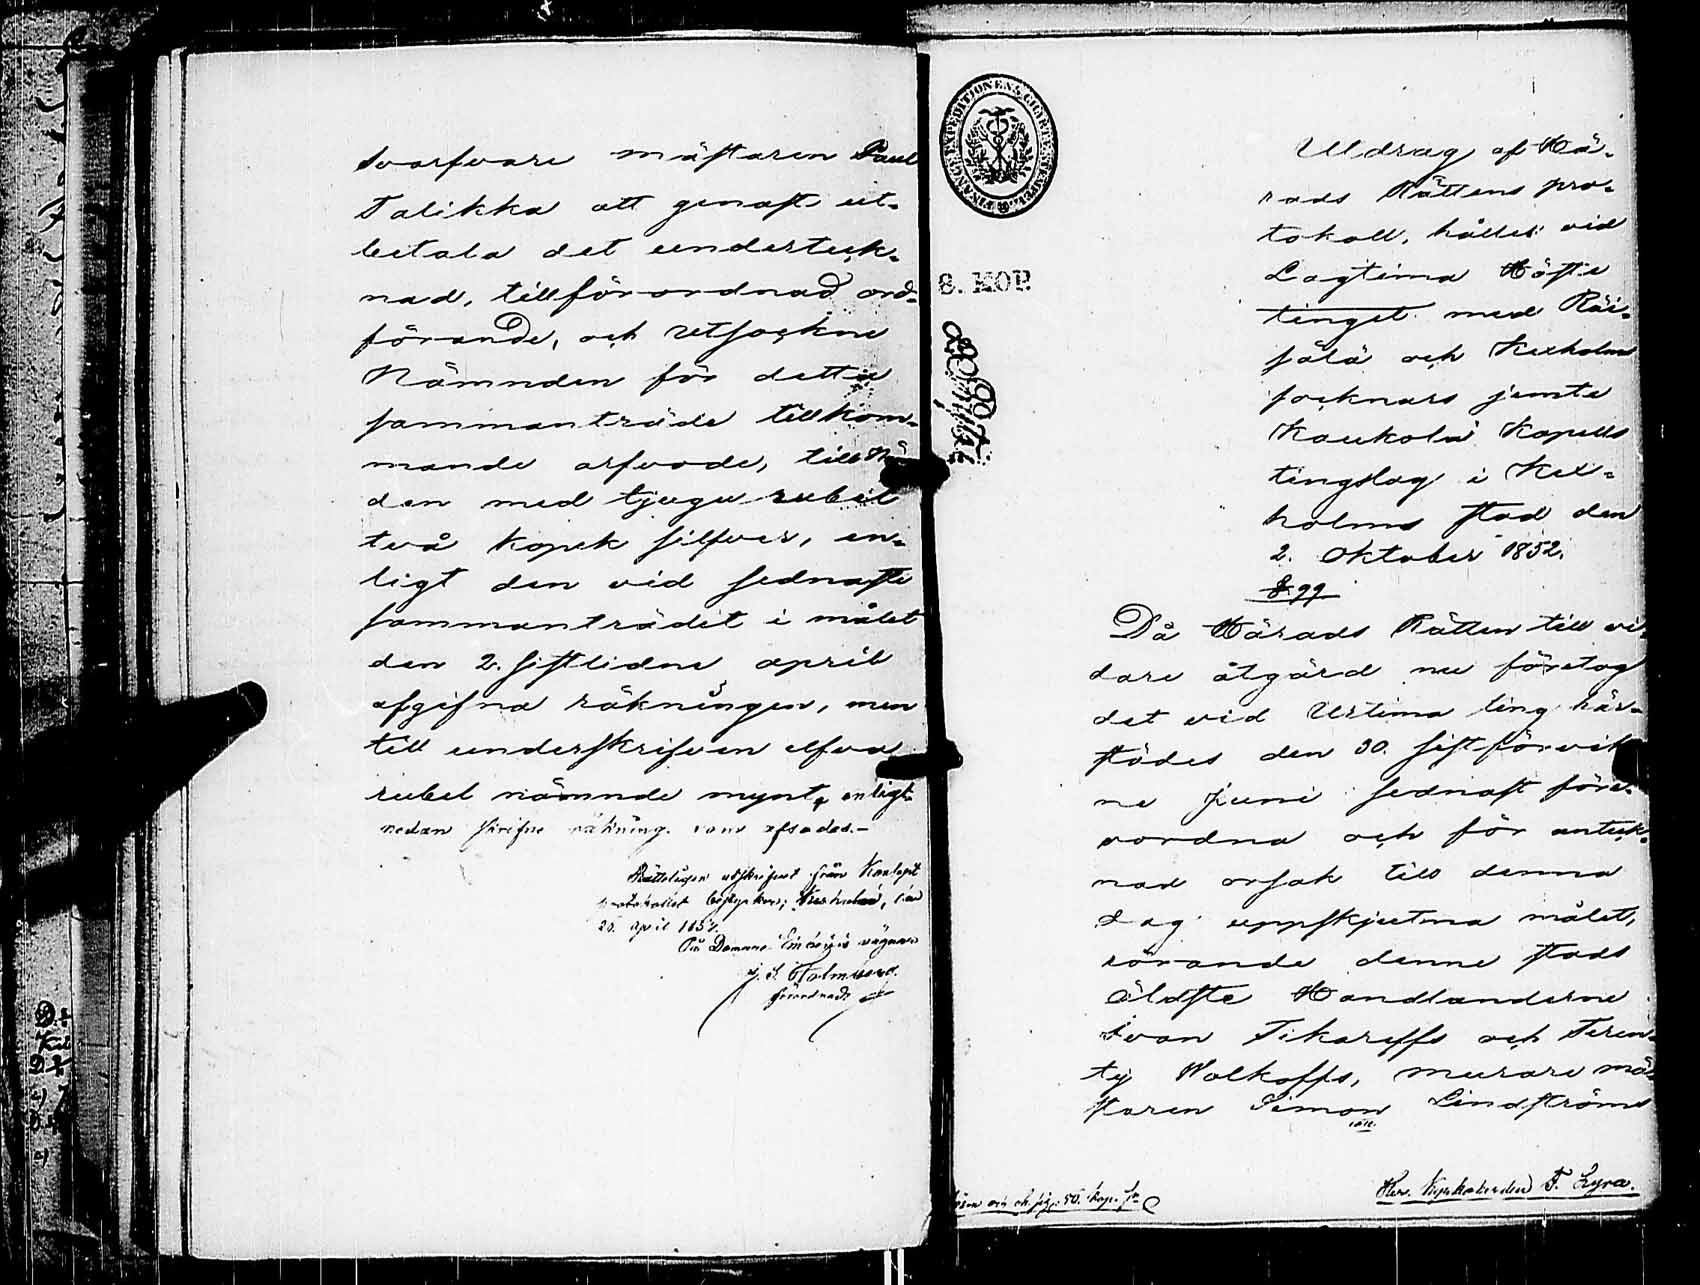 svarfvare mästaren Paul
Talikka att genast ut-
betala det underteck-
nad, tillförordnad ord-
förande, och Utsockne
Nämnden för detta
sammanträde tillkom-
mande arfvode, till Nämn-
den med tjugu rubel
två kopek silfver, en-
ligt den vid sednaste
sammanträdet i målet
den 2. sistlidne april
afgifna räkningen, men
till underskrifven elfva
rubel nämnde mynt, enligt
nedan skrifne räkning. som afsades.-
Rätteligen afskrifvet från Koncept
protokollet betygar; Kexholm, den
25. april 185
På Domare Embetets vägnar
J. S. Holmberg.
förordnad
8. KOP.
Utdrag af Hä-
rads Rättens pro-
tokoll, hållet vid
Lagtima Höste
tinget med Räi-
sälä och Kexholms
socknars jemte
Kaukola Kapells
tingslag i Kex-
holms stad den
2. Oktober 1852.
§ 99
Då Härads Rätten till vi-
dare åtgärd nu företog
det vid Urtima ting här-
städes den 30. sistförvik
ne Juni sednast före-
vordna och för anteck-
nad orsak till denna
dag uppskjutna målet,
rörande denne stads
äldste Handlanderne
Ivan Tikareffs och Teren-
tij Wolkoffs, murare mä-
staren Simon Lindströms
och sig: 50. kop. Sr
Herr Vicekateurden F. Zyra.